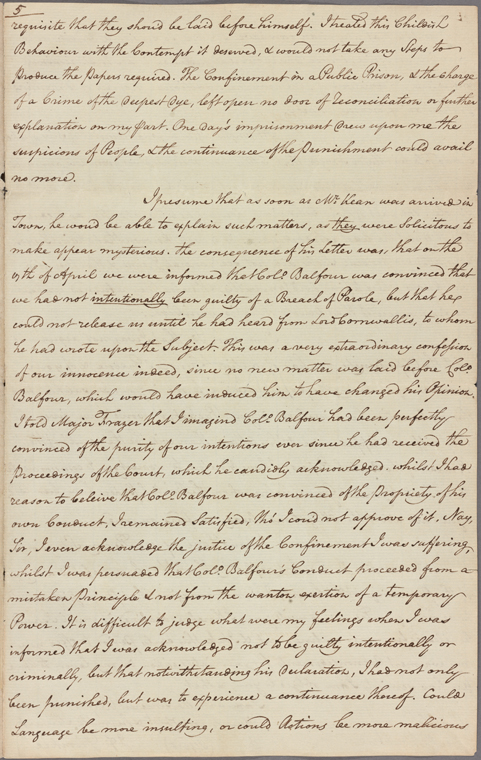 5
requisite that they should be laid before himself. I treated this Childish
Behaviour with the Contempt it deserved, & would not take any Steps to
produce the Papers required. The Confinement in a Public Prison, & the charge
of a Crime of the deepest dye, left open no door of Reconciliation or further
explanation on my part. One day's imprisonment drew upon me the
suspicions of People, & the continuance of the Punishment could avail
no more.
I presume that as soon as Mr. Kean was arrived in
Town, he would be able to explain such matters, as they were Solicitous to
make appear mysterious. the consequence of his Letter was, that on the
17th of April we were informed that Colo. Balfour was convinced that
we had not intentionally been guilty of a Breach of Parole, but that he
could not release us until he had heard from Lord Cornwallis, to whom
he had wrote upon the Subject. This was a very extraordinary confession
of our innocence indeed, since no new matter was laid before Colo.
Balfour, which would have induced him to have changed his Opinion.
I told Major Frazer that I imagined Colo. Balfour had been perfectly
convinced of the purity of our intentions ever since he had received the
Proceedings of the Court, which he candidly acknowledged. whilst I had
reason to beleive that Colo. Balfour was convinced of the Propriety of his
own Conduct, I remained Satisfied, tho' I could not approve of it, Nay,
Sir, I even acknowledge the justice of the Confinement I was suffering,
whilst I was persuaded that Colo. Balfour's Conduct proceeded from a
mistaken Principle & not from the wanton exertion of a temporary
Power. It is difficult to judge what were my feelings when I was
informed that I was acknowledged not to be guilty intentionally or
criminally, but that notwithstanding his declaration, I had not only
been punished, but was to experience a continuance thereof. Could
Language be more insulting, or could Actions be more malicious